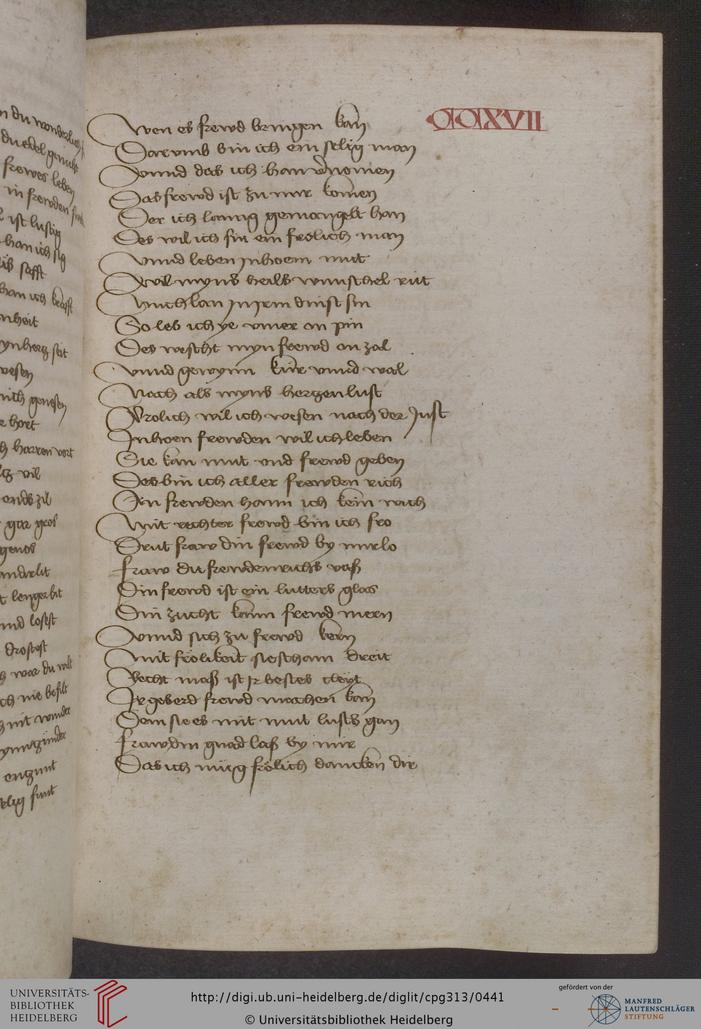 CCXVII
Wen es frewd bringen kan
Dar vmb bin ich ein selig man
Vnnd das ich han vernomen
Das frewd ist zu mir komen
Der ich lanng gemangelt han
Des wil ich sin ein frolich man
Vnnd leben in hoem mut
Wil myns heils wunschel rut
Mich lan in irm dinst sin
So leb ich ye vmer on pin
Des wescht myn frewd on zal
Vnnd gewynn kur vnnd wal
Nach als myns hertzen lust
Frolich wil ich wesen nach der Just
In hoen frewden wil ich leben
Sie kan mut vnd frewd geben
Des bin ich aller frewden rich
In frewden hann ich kein wich
Mit rechter frewd bin ich fro
Drut fraw din frewd by mir lo
fraw du frewdenrichs vaß
Din frewd ist ein lutters glas
Din zucht kann frewd mern
Vnnd sich zu frewd kern
Mit frolikeit sie scham dreit
Recht maß ist ir bestes cleyt
Ir geberd frewd machen kan
Dem sie es mit mut lusts gan
fraw din gnad laß by mir
Das ich mug frolich dancken dir
UNIVERSITÄTS-
BIBLIOTHEK
HEIDELBERG
http://digi.ub.uni-heidelberg.de/diglit/cpg313/0441
© Universitätsbibliothek Heidelberg
gefördert von der
MANFRED
LAUTENSCHLÄGER
STIFTUNG